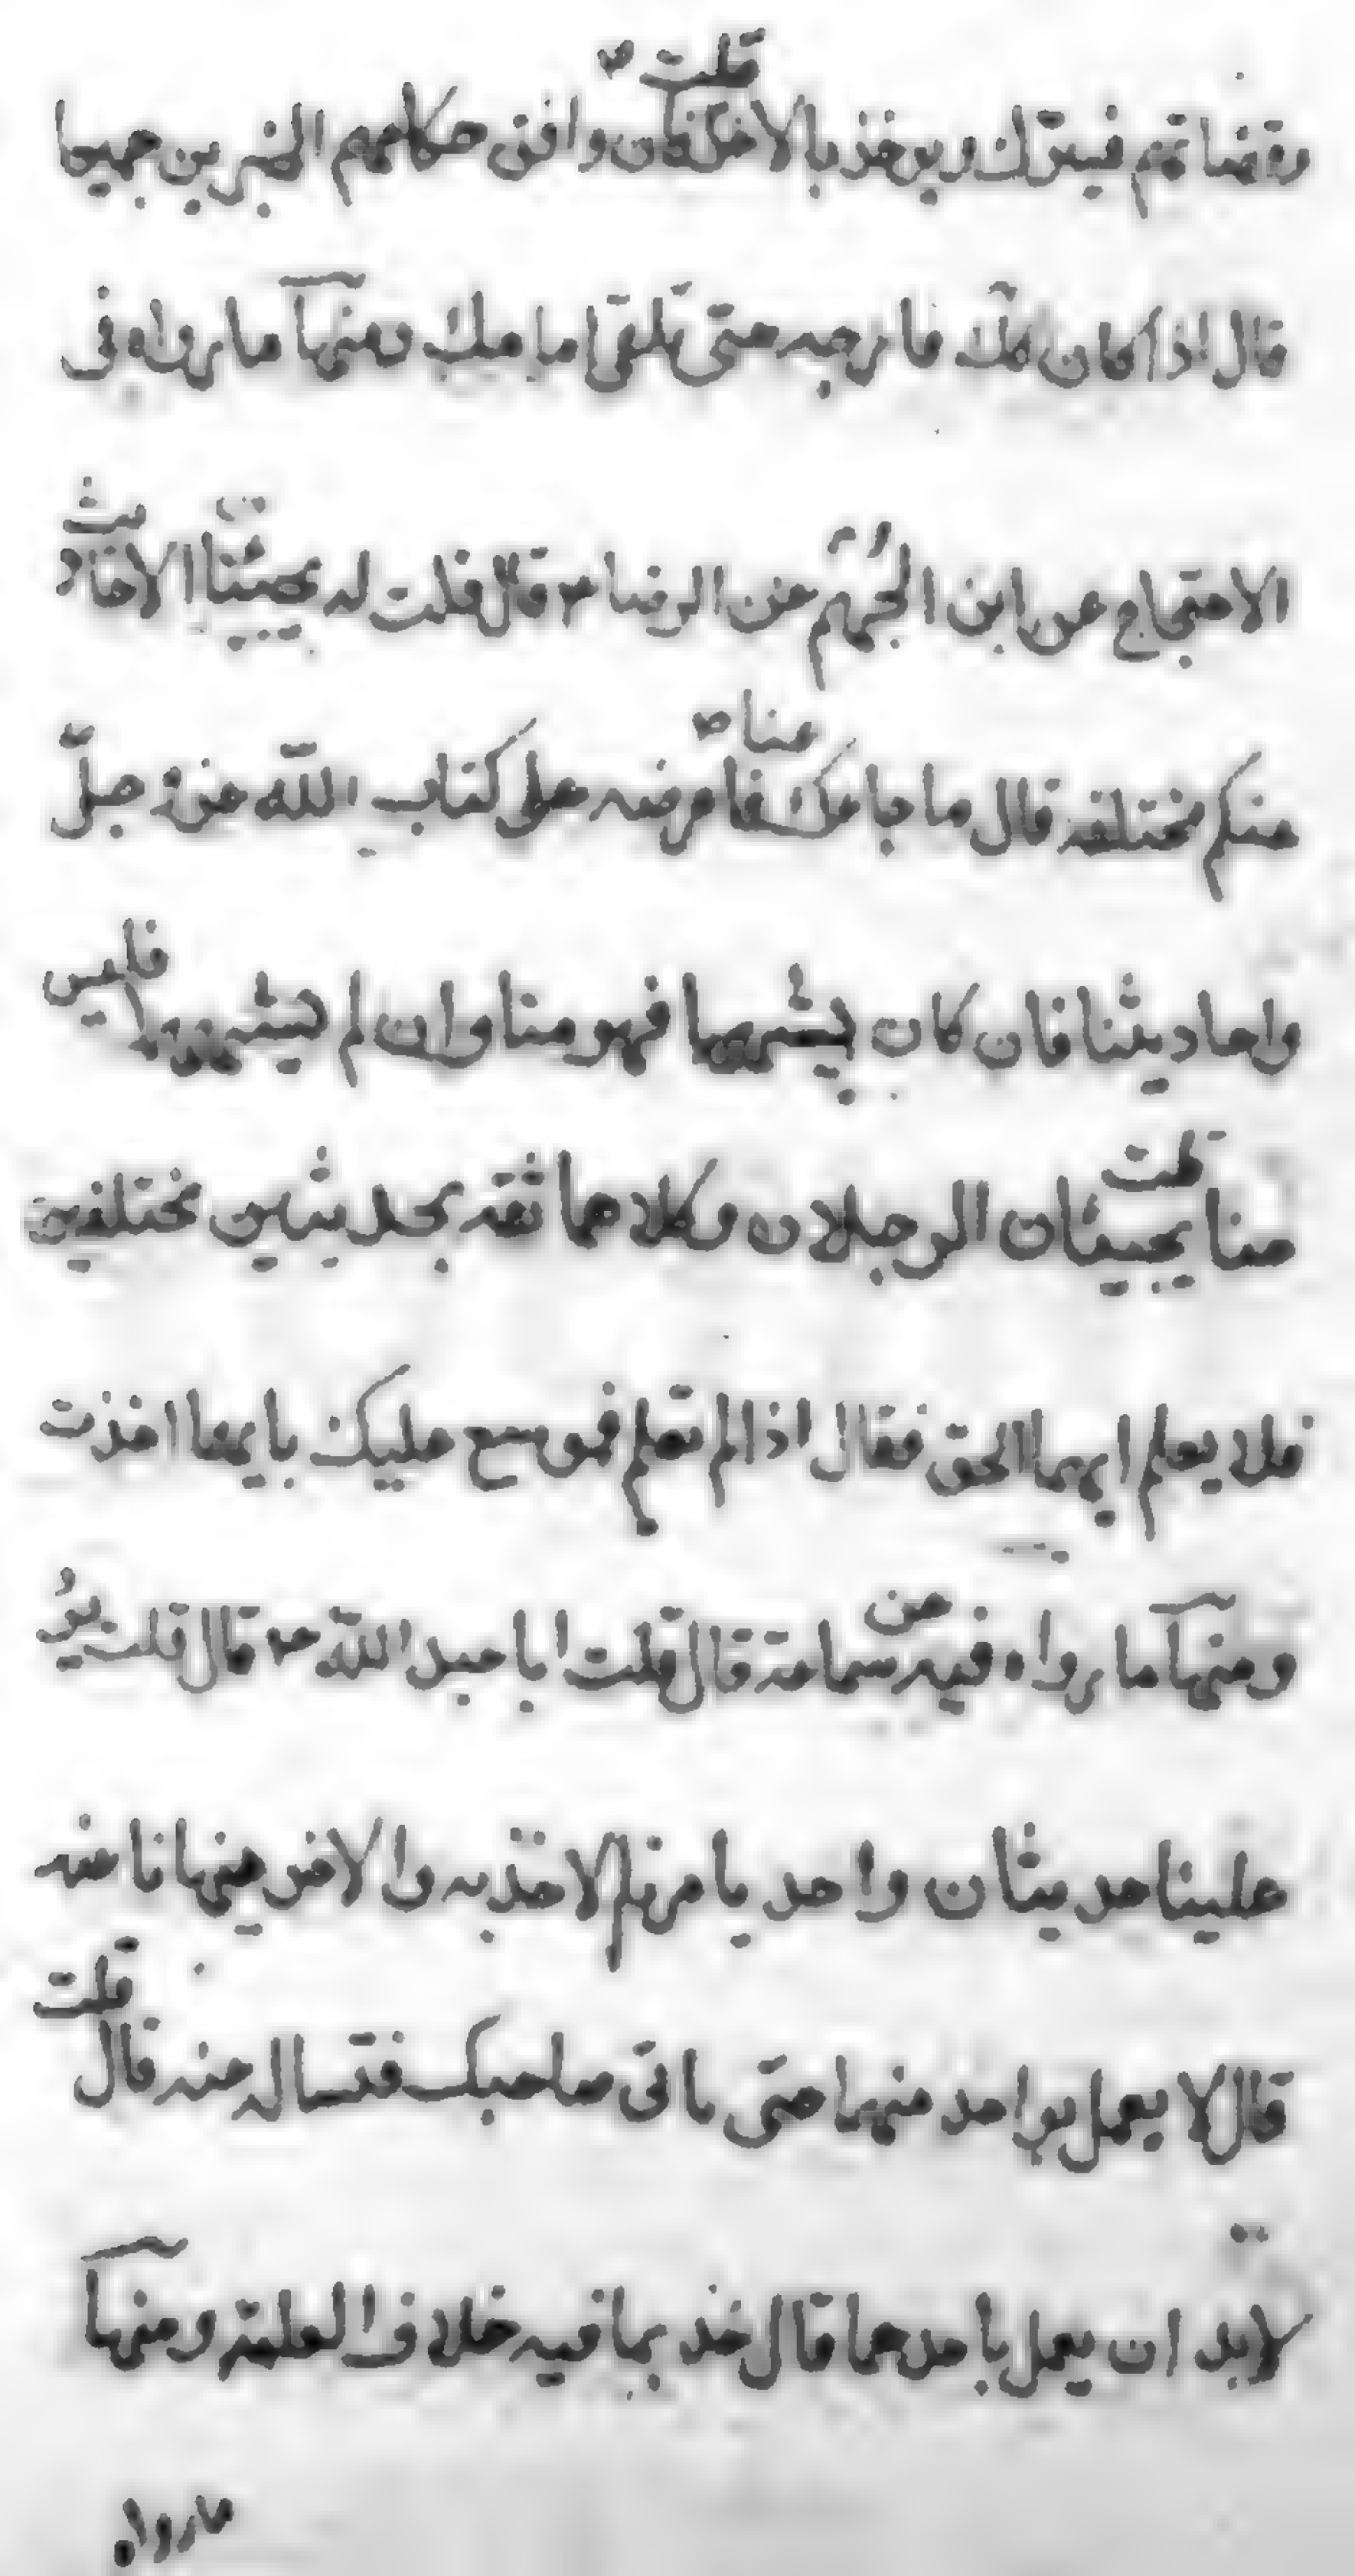 وقضاتهم فيترك ويوخذ بالاخر قلت فان وافق حكامهم الخبرين جميعا
قال اذا كان كك فارجه حتى تلقى امامك ومنها ما رواه فى
الاحتجاج عن ابن الجهم عن الرضا ع قال قلت له يجيئنا الاحاديث
منكم مختلفه قال ما جاءك عنا فاعرضه على كتاب الله عز و جلّ
واحاديثنا فان كان يشبههما فهو منا وان لم يشبههما فليس
منا قلت يجيئنا الرجلان وكلاهما ثقه بحديثين مختلفين
فلا يعلم ايهما الحق فقال اذا لم تعلم فموسع عليك بايهما اخذت
ومنها ما رواه فيه عن سماعة قال قلت ابا عبد الله ع قال قلت يرد
علينا حديثان واحد يامرنا بالاخذ به والاخر ينهانا عنه
قال لا يعمل بواحد منهما حتى ياتى صاحبك فتساله عنه قال قلت
لابد ان يعمل باحدهما قال خذ بما فيه خلاف العامة ومنها
ما رواه